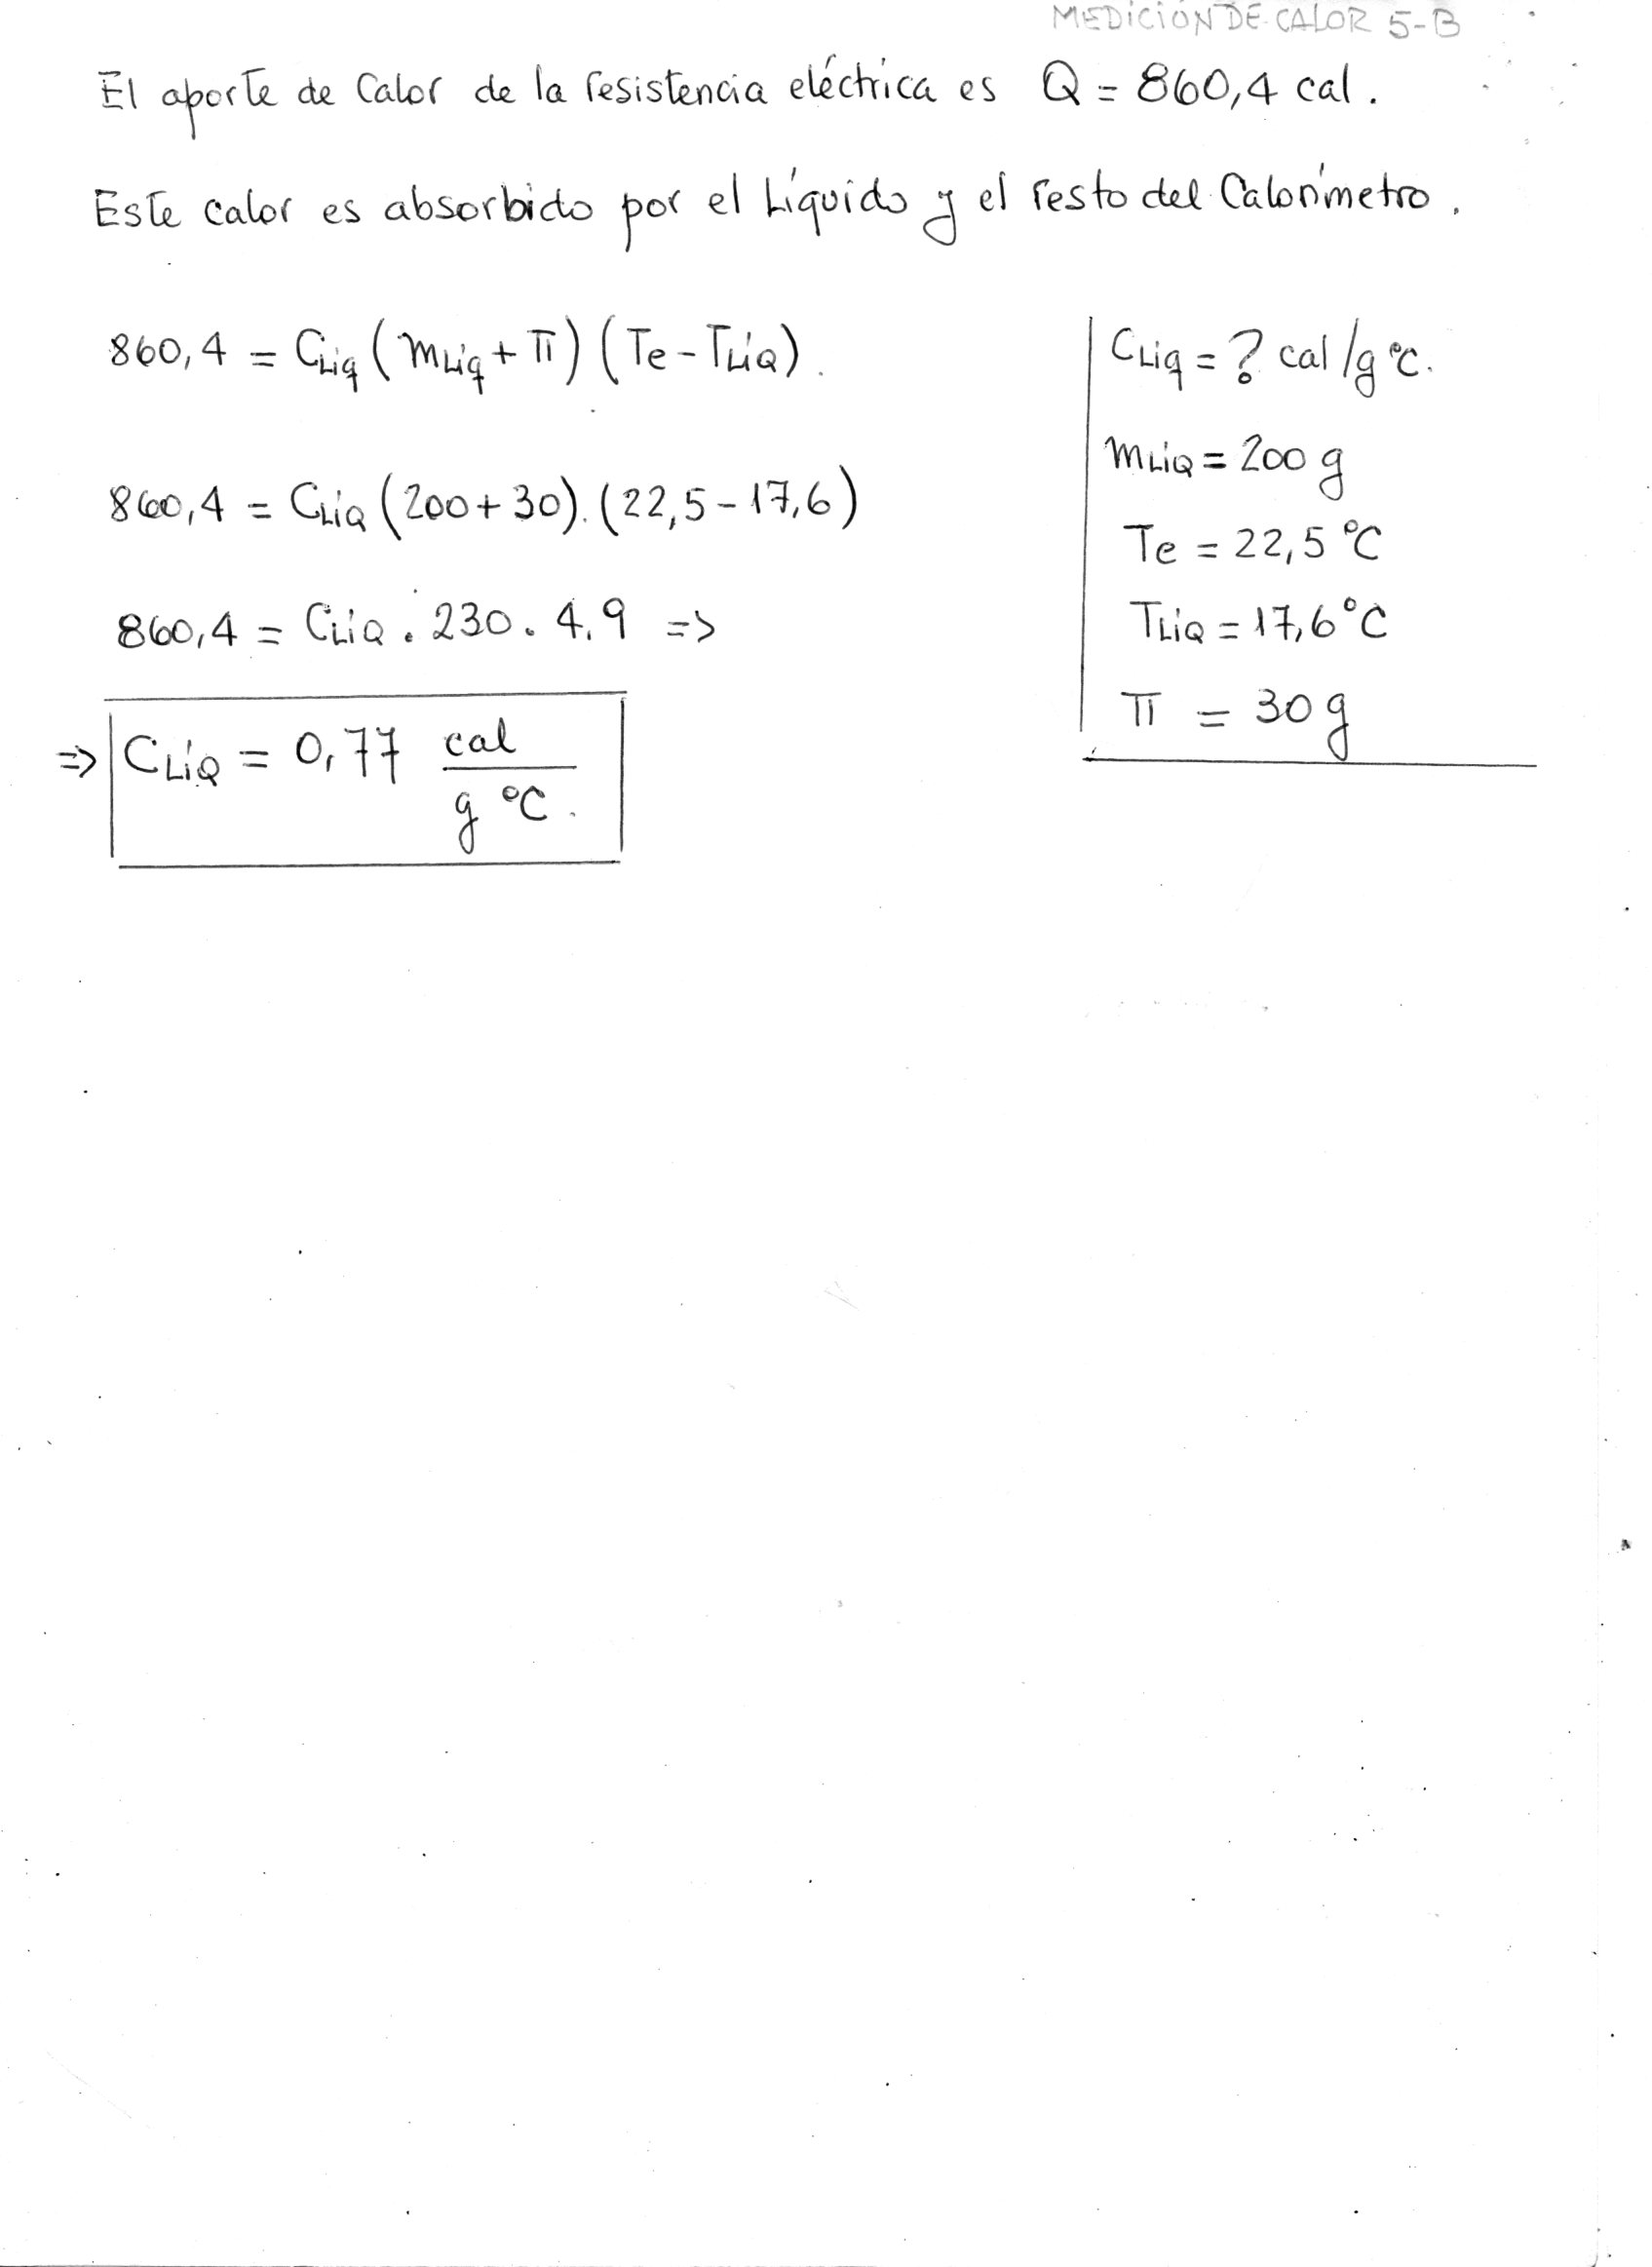 MEDICIÓN DE CALOR 5-B
El aporte de Calor de la resistencia eléctrica es Q = 860,4 cal.
Este calor es absorbido por el Líquido y el resto del Calorímetro.
860,4 = CLíq (mLíq + π) (Te - TLíQ).
860,4 = CLíQ (200 + 30) . (22,5 - 17,6)
860,4 = CLíQ . 230 . 4,9 =>
=> CLíQ = 0,77 cal / g °C.
CLíq = ? cal/g °C.
mLíQ = 200 g
Te = 22,5 °C
TLíQ = 17,6 °C
π = 30 g